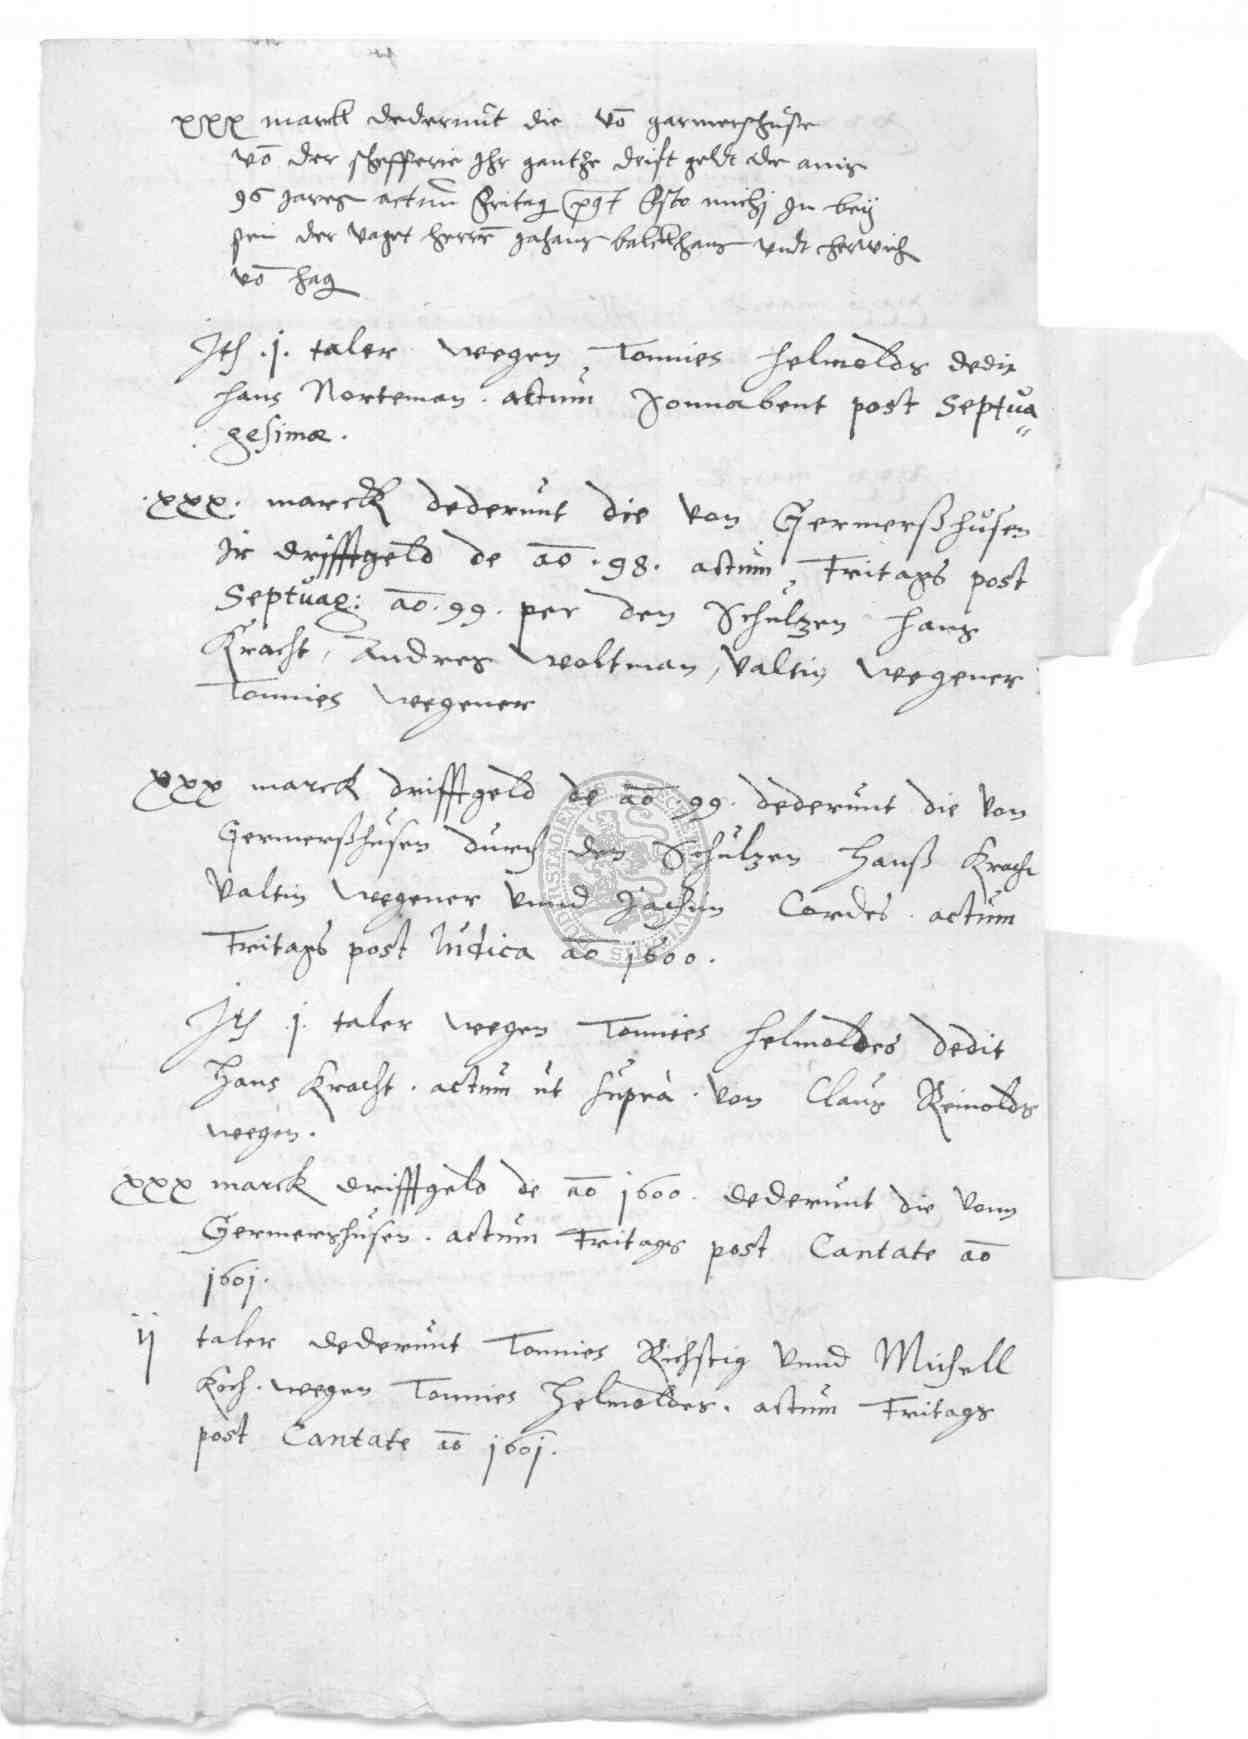 xxx marck dederunt die vō garmerßhuse
vō der schefferie Ihr gantze drift geldt de anis
96 Jares actum Fritag post Esto michj In bey
sein der vaget herrē Johans balckhans undt
vō hag
Itē .j. taler wegen Tonnies Helmolds dedit
Hans Norteman . actum Sonnabent post Septua
gesimæ .
.xxx. marck dederunt die von Germerßhusen
Ir drifftgeld de aō .98. actum Fritags post
Septuag: aō .99. per den Schultzen Hans
Kracht, Andres Woltman, Valtin Wegener
Tonnies Wegener
xxx marck drifftgeld de aō .99. dederunt die von
Germerßhusen durch den Schultzen Hanß Kracht
Valtin Wegener unnd Jachim Cordes . actum
Fritags post Iudica aō 1600 .
Itē .j. taler wegen Tonnies Helmoldes dedit
Hans Kracht . actum ut supra . von Claus Reinolds
wegen .
xxx marck drifftgeld de aō 1600 . dederunt die vonn
Germershusen . actum Fritags post Cantate aō
1601 .
ij taler dederunt Tonnies Richstig unnd Michell
Koch . wegen Tonnies Helmoldes . actum Fritags
post Cantate aō 1601 .